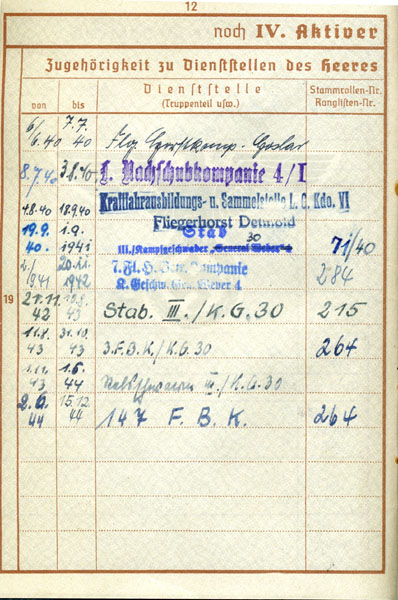 12
noch IV. Aktiver
Zugehörigkeit zu Dienststellen des Heeres
von
bis
Dienststelle
(Truppenteil usw.)
Stammrollen-Nr.
Ranglisten-Nr.
6.40 7.7.40 Flg. Goslar
8.7.40 3.8.40 L. Nachschubkompanie 4/I
4.8.40 18.9.40 Kraftfahrausbildungs- u. Sammelstelle L. G. Kdo. VI
Fliegerhorst Detmold
19.9.40. 1941 Stab 71/40
30
III./Kampfgeschwader „General Wever" 4
1941 1942 7. Fl. H. Kompanie 284
K. Geschw. Gen. Wever 4
19
21.11.42 43 Stab. III./K.G.30 215
43 31.10.43 3.F.B.K./K.G.30 264
1.11.43 1.6.44 III./K.G.30
2.6.44 15.12.44 147 F.B.K. 264